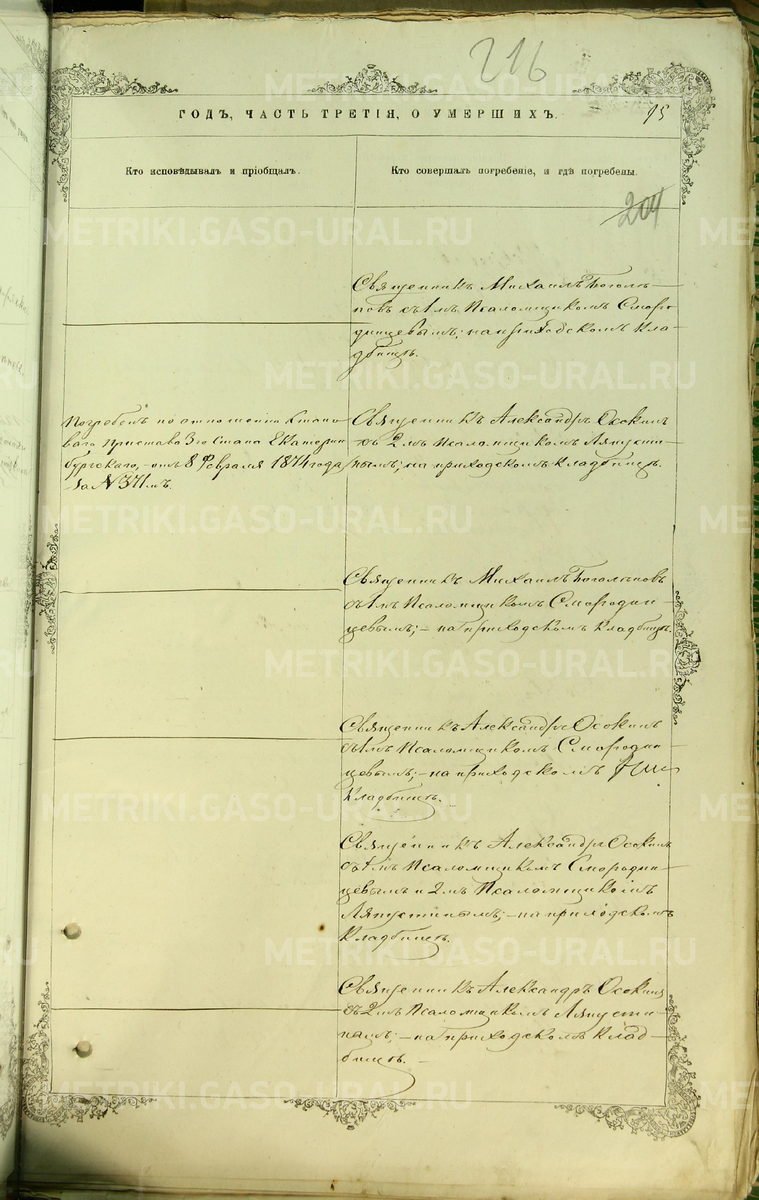 216
ГОДЪ, ЧАСТЬ ТРЕТІЯ, О УМЕРШИХЪ.
95
Кто исповѣдывалъ и пріобщалъ.
Кто совершалъ погребеніе, и гдѣ погребены.
204
Священникъ Михаилъ Боголѣ-
повъ съ 1мъ Псаломщикомъ Сморо-
динцевымъ; на приходскомъ кла-
дбищѣ.
Погребенъ по отношенію Стано-
ваго пристава 3го Стана Екатерин-
бургскаго, отъ 8 Февраля 1874 года
за № 371мъ.
Священникъ Александръ Осокинъ
съ 2мъ Псаломщикомъ Ляпусти-
нымъ; на приходскомъ кладбищѣ.
Священникъ Михаилъ Боголѣповъ
съ 1мъ Псаломщикомъ Смородин-
цевымъ; - на приходскомъ кладбищѣ.
Священникъ Александръ Осокинъ
съ 1мъ Псаломщикомъ Смородин-
цевымъ; - на приходскомъ
кладбищѣ.
Священникъ Александръ Осокинъ
съ 1мъ Псаломщикомъ Смородин-
цевымъ и 2мъ Псаломщикомъ
Ляпустинымъ; - на приходскомъ
кладбищѣ.
Священникъ Александръ Осокинъ
съ 2мъ Псаломщикомъ Ляпусти-
нымъ; - на приходскомъ клад-
бищѣ. -
METRIKI.GASO-URAL.RU